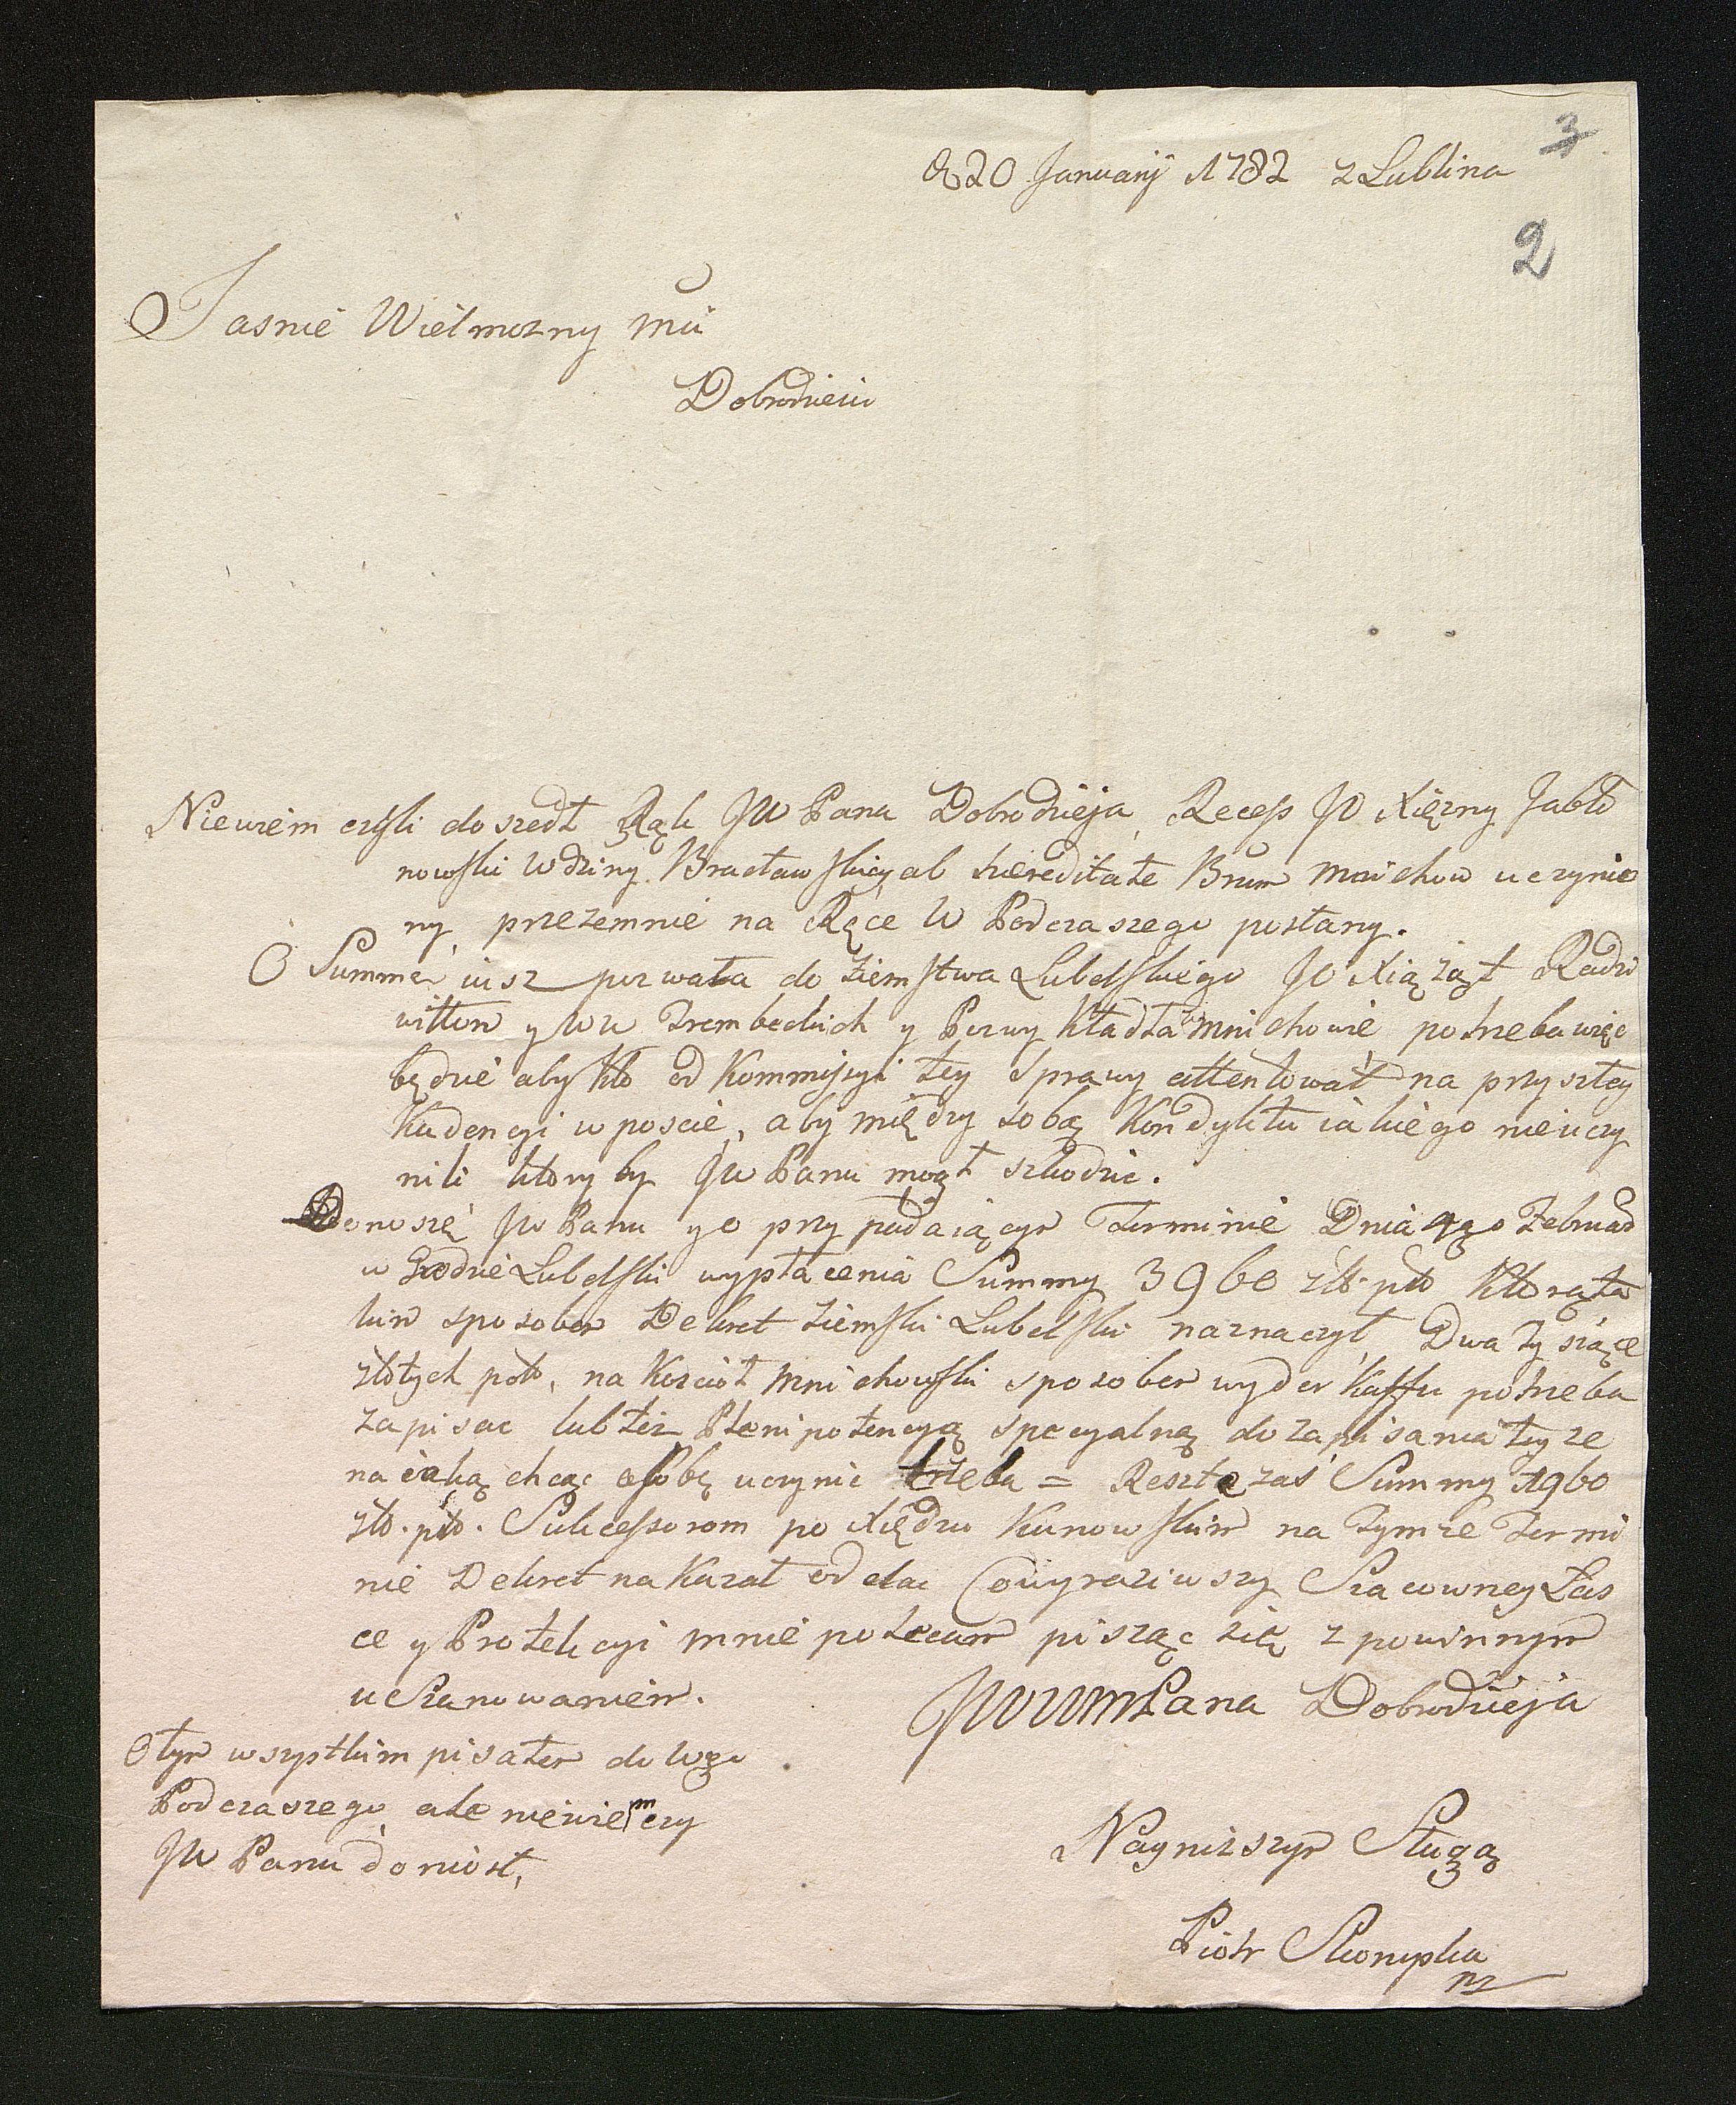 3
d 20 Januarij 1782 z Lublina
2
Jasnie Wielmozny Mci
Dobrodzieiu
Niewiem czyli doszedł Rąk JW Pana Dobrodzieja Recess JO Xięzny Jabło
nowski Wdziny Bracławskiey ab hereditate Brum Mnichow uczynio
ny przezemnie na Ręce W Podczaszego posłany.
O Summe iusz pozwała do Ziemstwa Lubelskiego JO Xiążąt Radzi
wiłłow y WW Trembeckich y Pozwy kładła w Mnichowie potrzeba więc
będzie aby kto od Kommissyi tey sprawy attentował na przyszłey
Kadencyi w poscie, aby między sobą Kondyktu iakiego nieuczy
nili ktory by JW Panu mogł szkodzic.
Donoszę JW Panu y o przypadaiącym Terminie Dnia 4go Februar
w Grodzie Lubelski wypłacenia Summy 3960 zło. pto ktorą ta
kim sposobem Dekret Ziemski Lubelski naznaczył, Dwa Tysiące
złotych pol, na Kosciół Mnichowski sposobem wyderkaffu potrzeba
zapisac lub też Plenipotencyą specyalną do zapisania teyze
na iaką chcąc osobę uczynic trzeba = Resztę zas Summy 1960
zło. pto. Sukcessorom po Xiędzu Kunowskim na Tymze Termi
nie Dekret nakazał oddac Co wyraziwszy Szacowney Łas
ce y Protekcyi mnie polecam pisząc się z powinnym
uszanowaniem.
JWWMPana Dobrodzieja
O tym wszystkim pisałem do Wgo
Podczaszego ale niewiem czy
JW Panu doniosł,
Nayniższym Sługą
Piotr Skorupka
mp